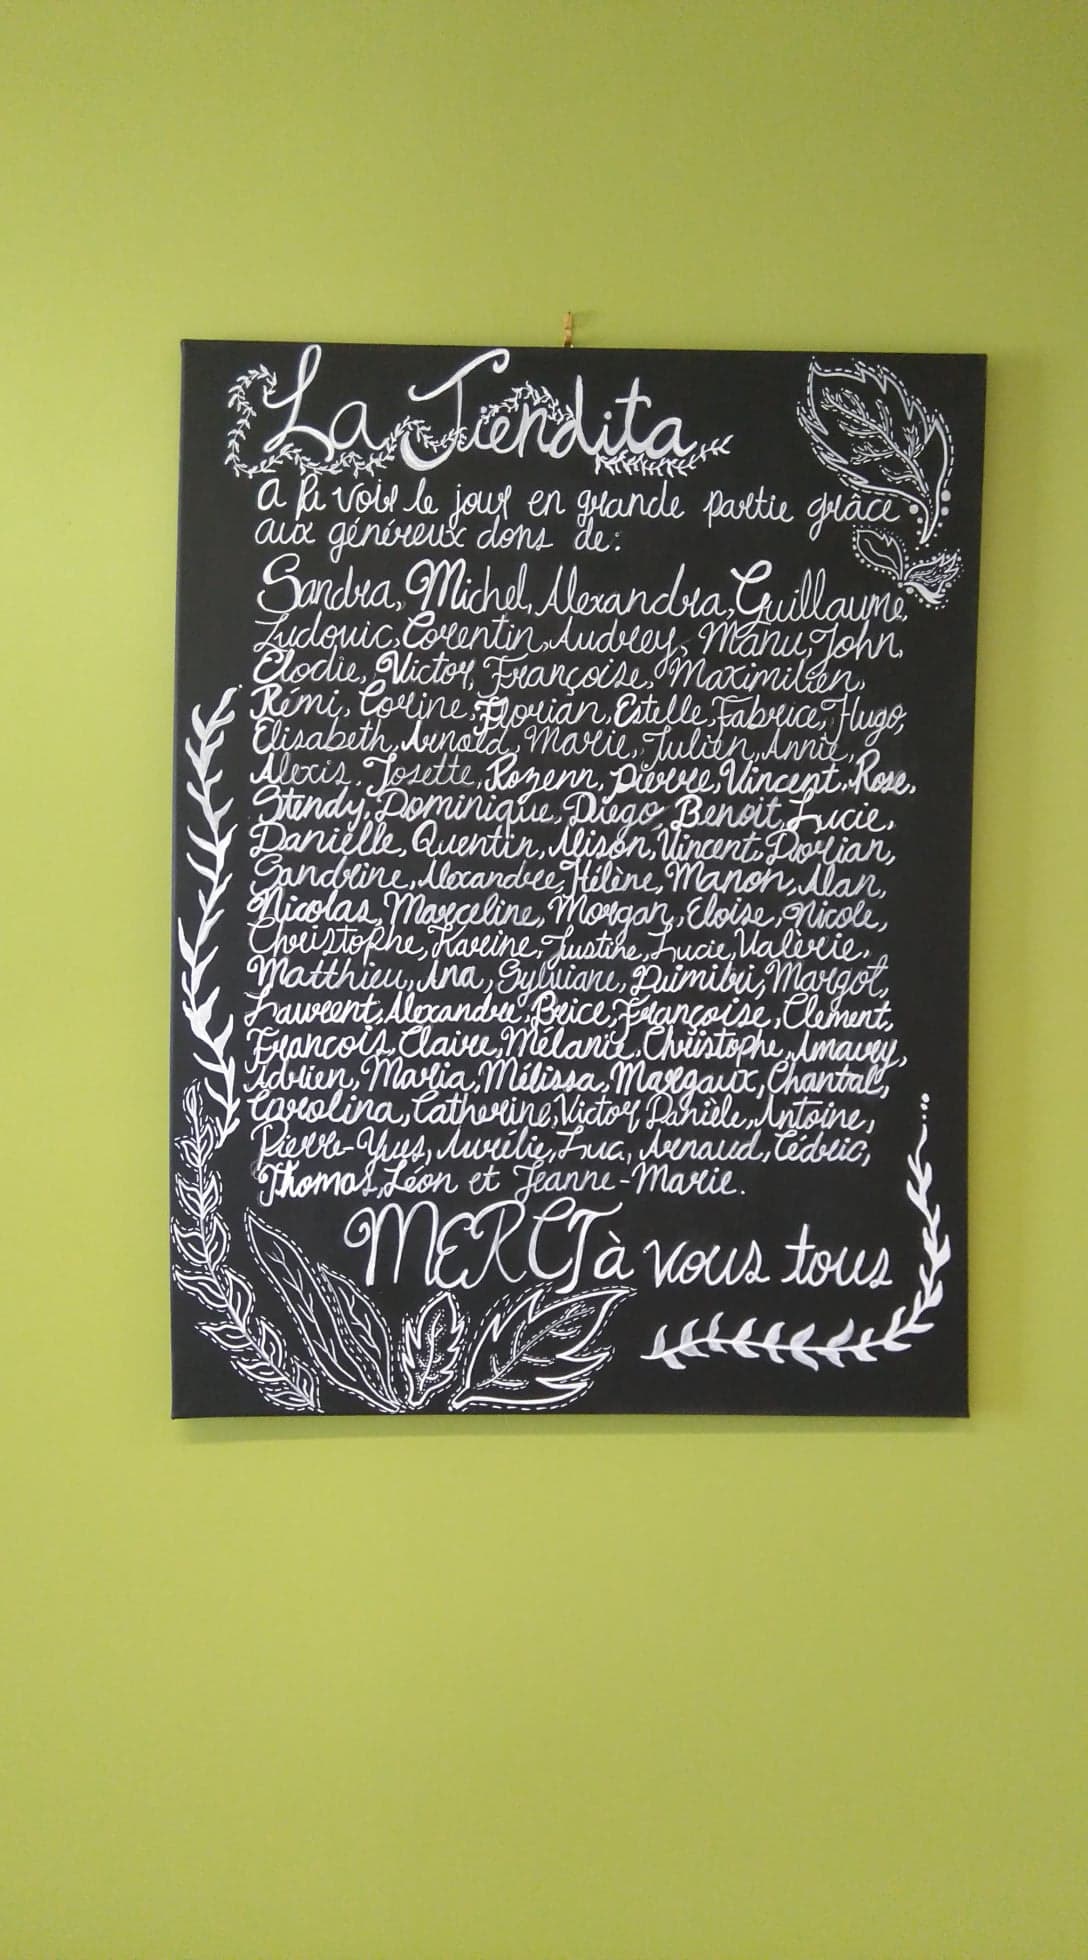 La Tiendita
a pu voir le jour en grande partie grâce
aux généreux dons de:
Sandra, Michel, Alexandra, Guillaume,
Ludovic, Corentin, Audrey, Manu, John,
Elodie, Victor, Françoise, Maximilien,
Rémi, Corine, Florian, Estelle, Fabrice, Hugo,
Elisabeth, Arnold, Marie, Julien, Annie,
Alexis, Josette, Rozenn, Pierre, Vincent, Rose,
Stendy, Dominique, Diego, Benoit, Lucie,
Danielle, Quentin, Alison, Vincent, Dorian,
Sandrine, Alexandre, Hélène, Manon, Alan,
Nicolas, Marceline, Morgan, Eloïse, Nicole,
Christophe, Karine, Justine, Lucie, Valèrie,
Matthieu, Ana, Sylviane, Dimitri, Margot,
Laurent, Alexandre, Brice, Françoise, Clement,
François, Claire, Mélanie, Christophe, Amaury,
Adrien, Maria, Mélissa, Margaux, Chantal,
Carolina, Catherine, Victor, Danièle, Antoine,
Pierre-Yves, Aurélie, Luca, Arnaud, Cédric,
Thomas, Léon et Jeanne-Marie.
MERCI à vous tous